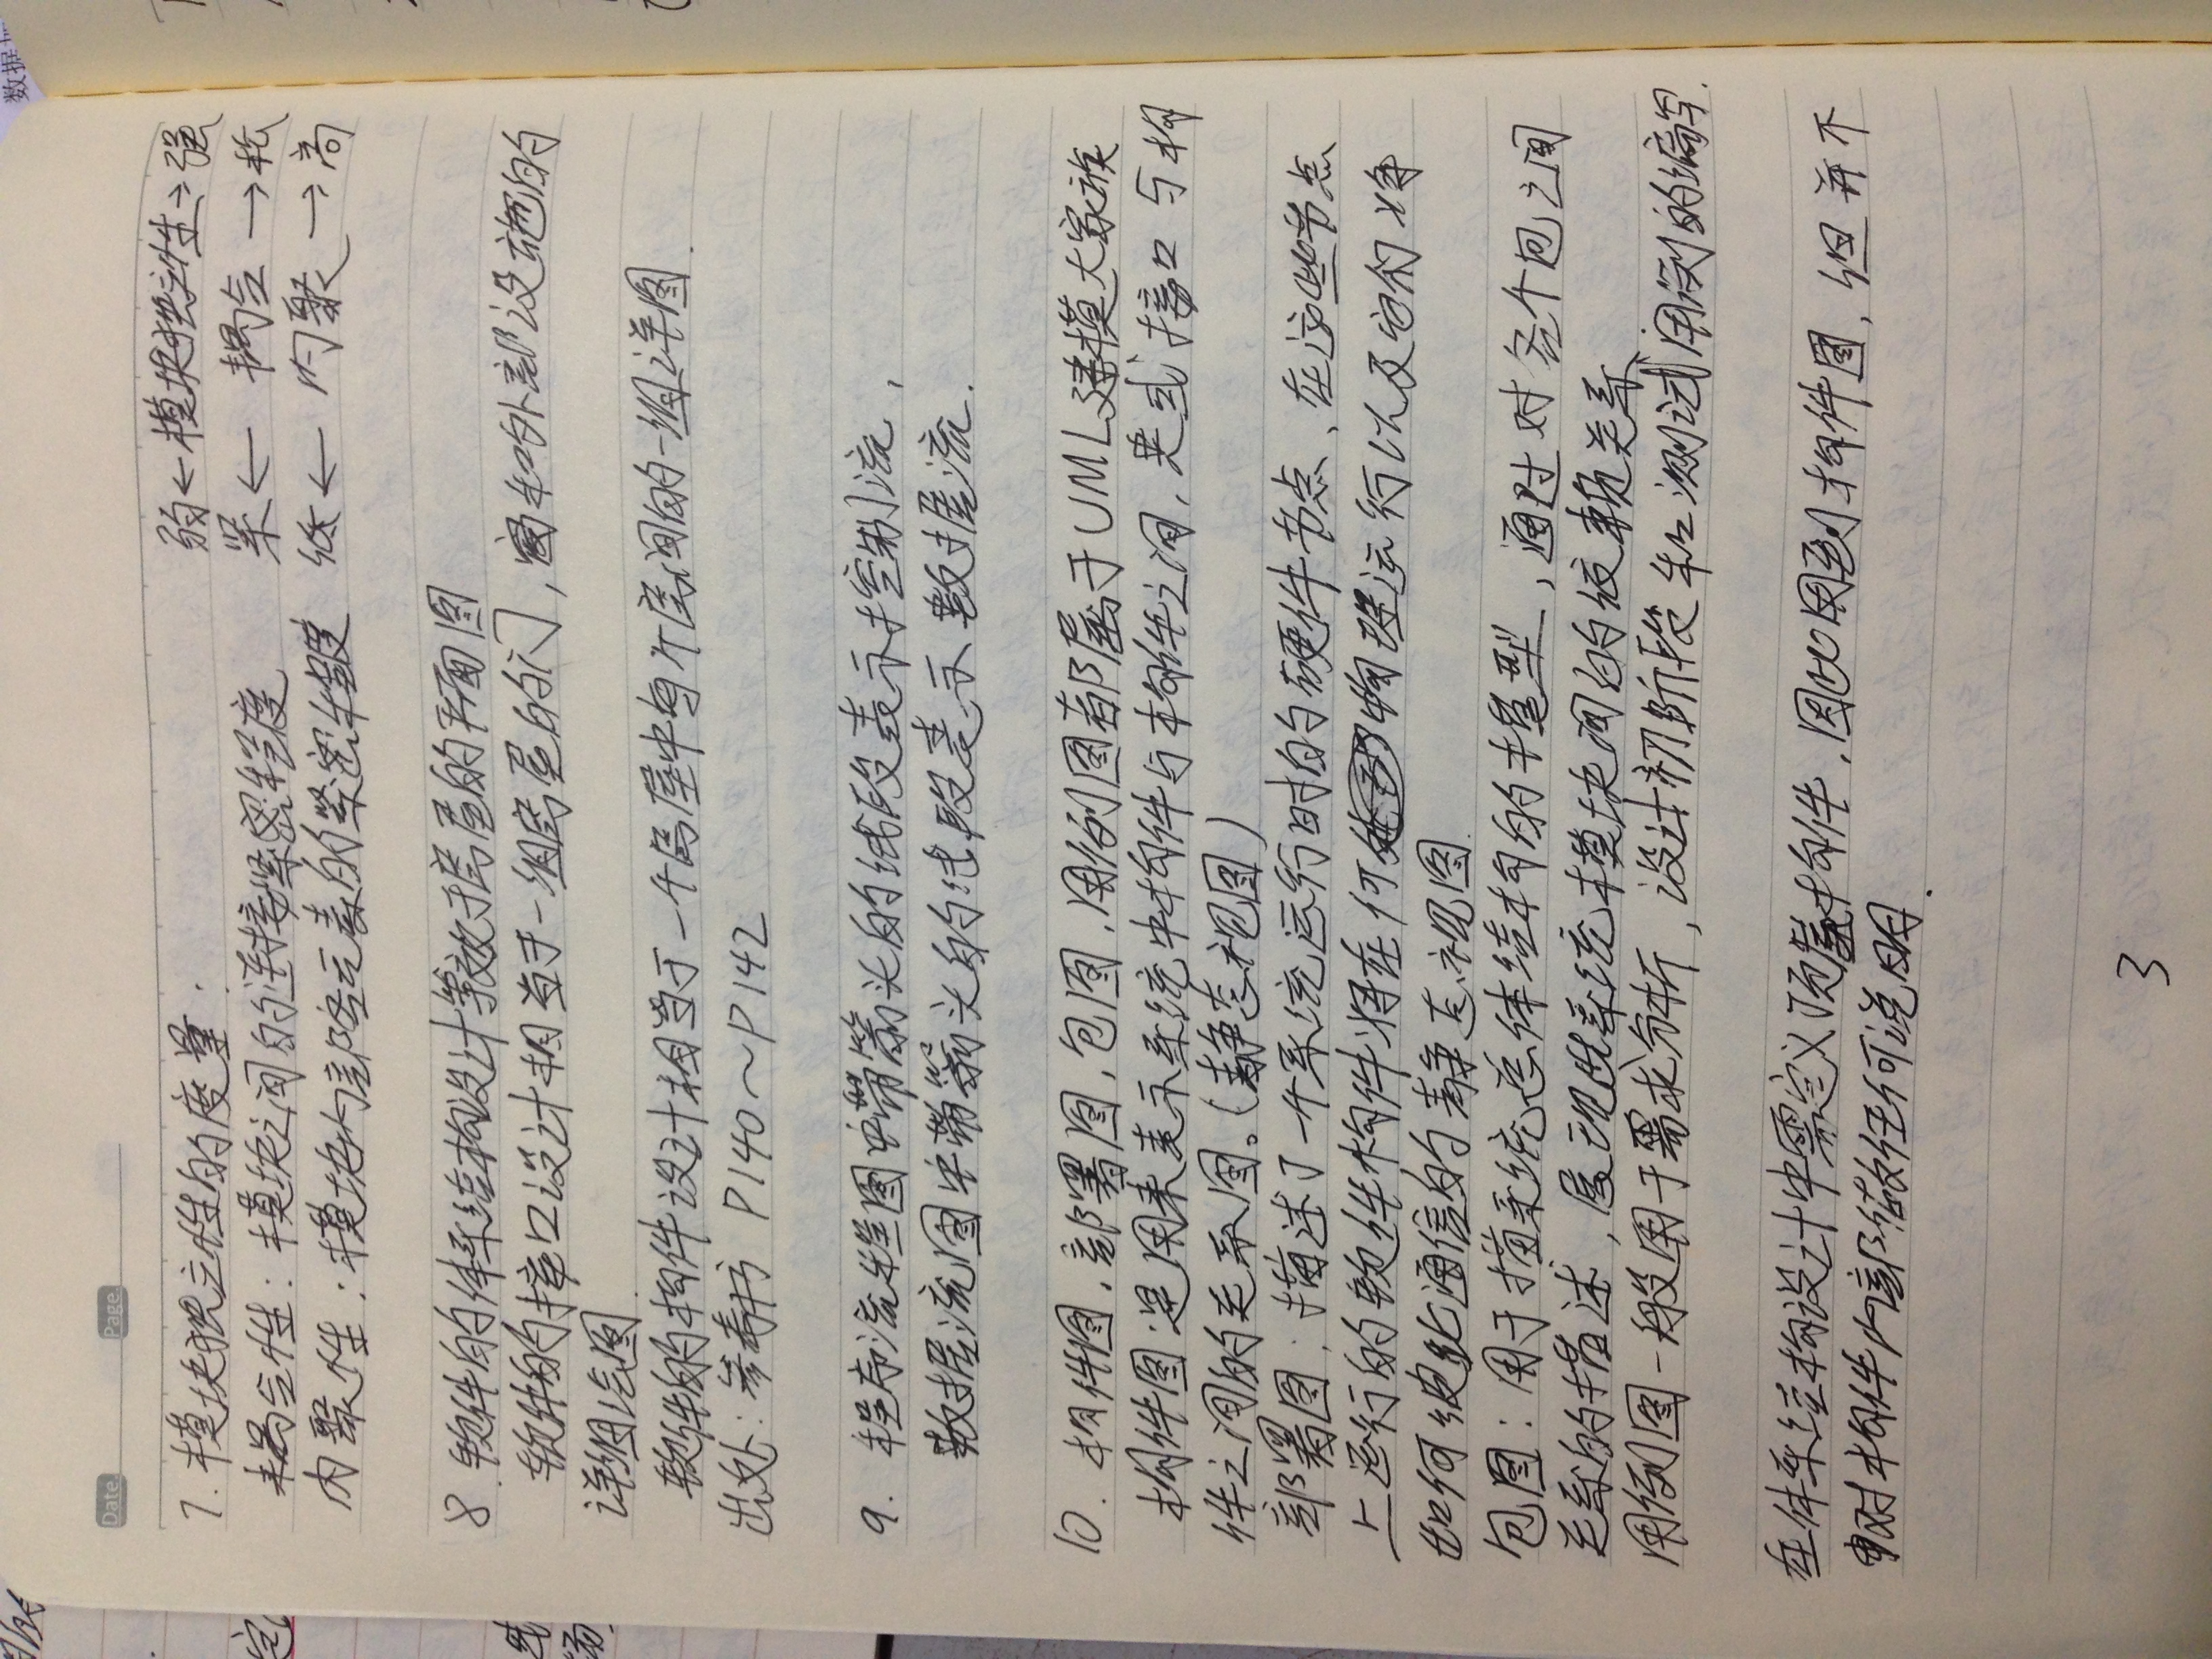 数据
Date. Page.
7. 模块独立性的度量:
弱←模块独立性→强
耦合性: 模块之间的连接紧密程度
紧← 耦合 →松
内聚性: 模块内部各元素的紧密程度
低← 内聚 →高
8. 软件的体系结构设计等效于房屋的平面图
软件的接口设计相当于一组房屋的门, 窗和外部设施的
详细绘图.
软件的构件设计相当于一个房屋中每个房间的一组详图.
出处: 参考书 P140～P142
9. 程序流程图中带箭头的线段表示控制流,
数据流图中带箭头的线段表示数据流.
10. 构件图, 部署图, 包图, 用例图都属于UML建模大家族
构件图:是用来表示系统中构件与构件之间, 类或接口与构
件之间的关系图。(静态视图)
部署图: 描述了一个系统运行时的硬件节点、在这些节点
上运行的软件构件将在何物理运行以及它们将
如何彼此通信的静态视图.
包图: 用于描系统总体结构的模型, 通过对各个包之间
关系的描述, 展现出系统模块间的依赖关系.
用例图一般用于需求分析, 设计初阶段和测试用例的编写.
在体系结构设计中需定义顶层构件, 因此用到构件图, 但并不
对构件内部做任何说明.
3